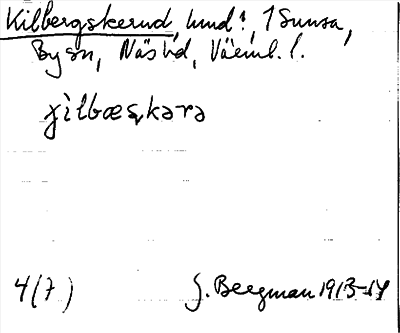 Kilbergskerud, hmd?, 1 Sunsa,
By sn, Näs hd, Värml. l.
jilbæskəra
4(7)
G. Bergman 1913-14